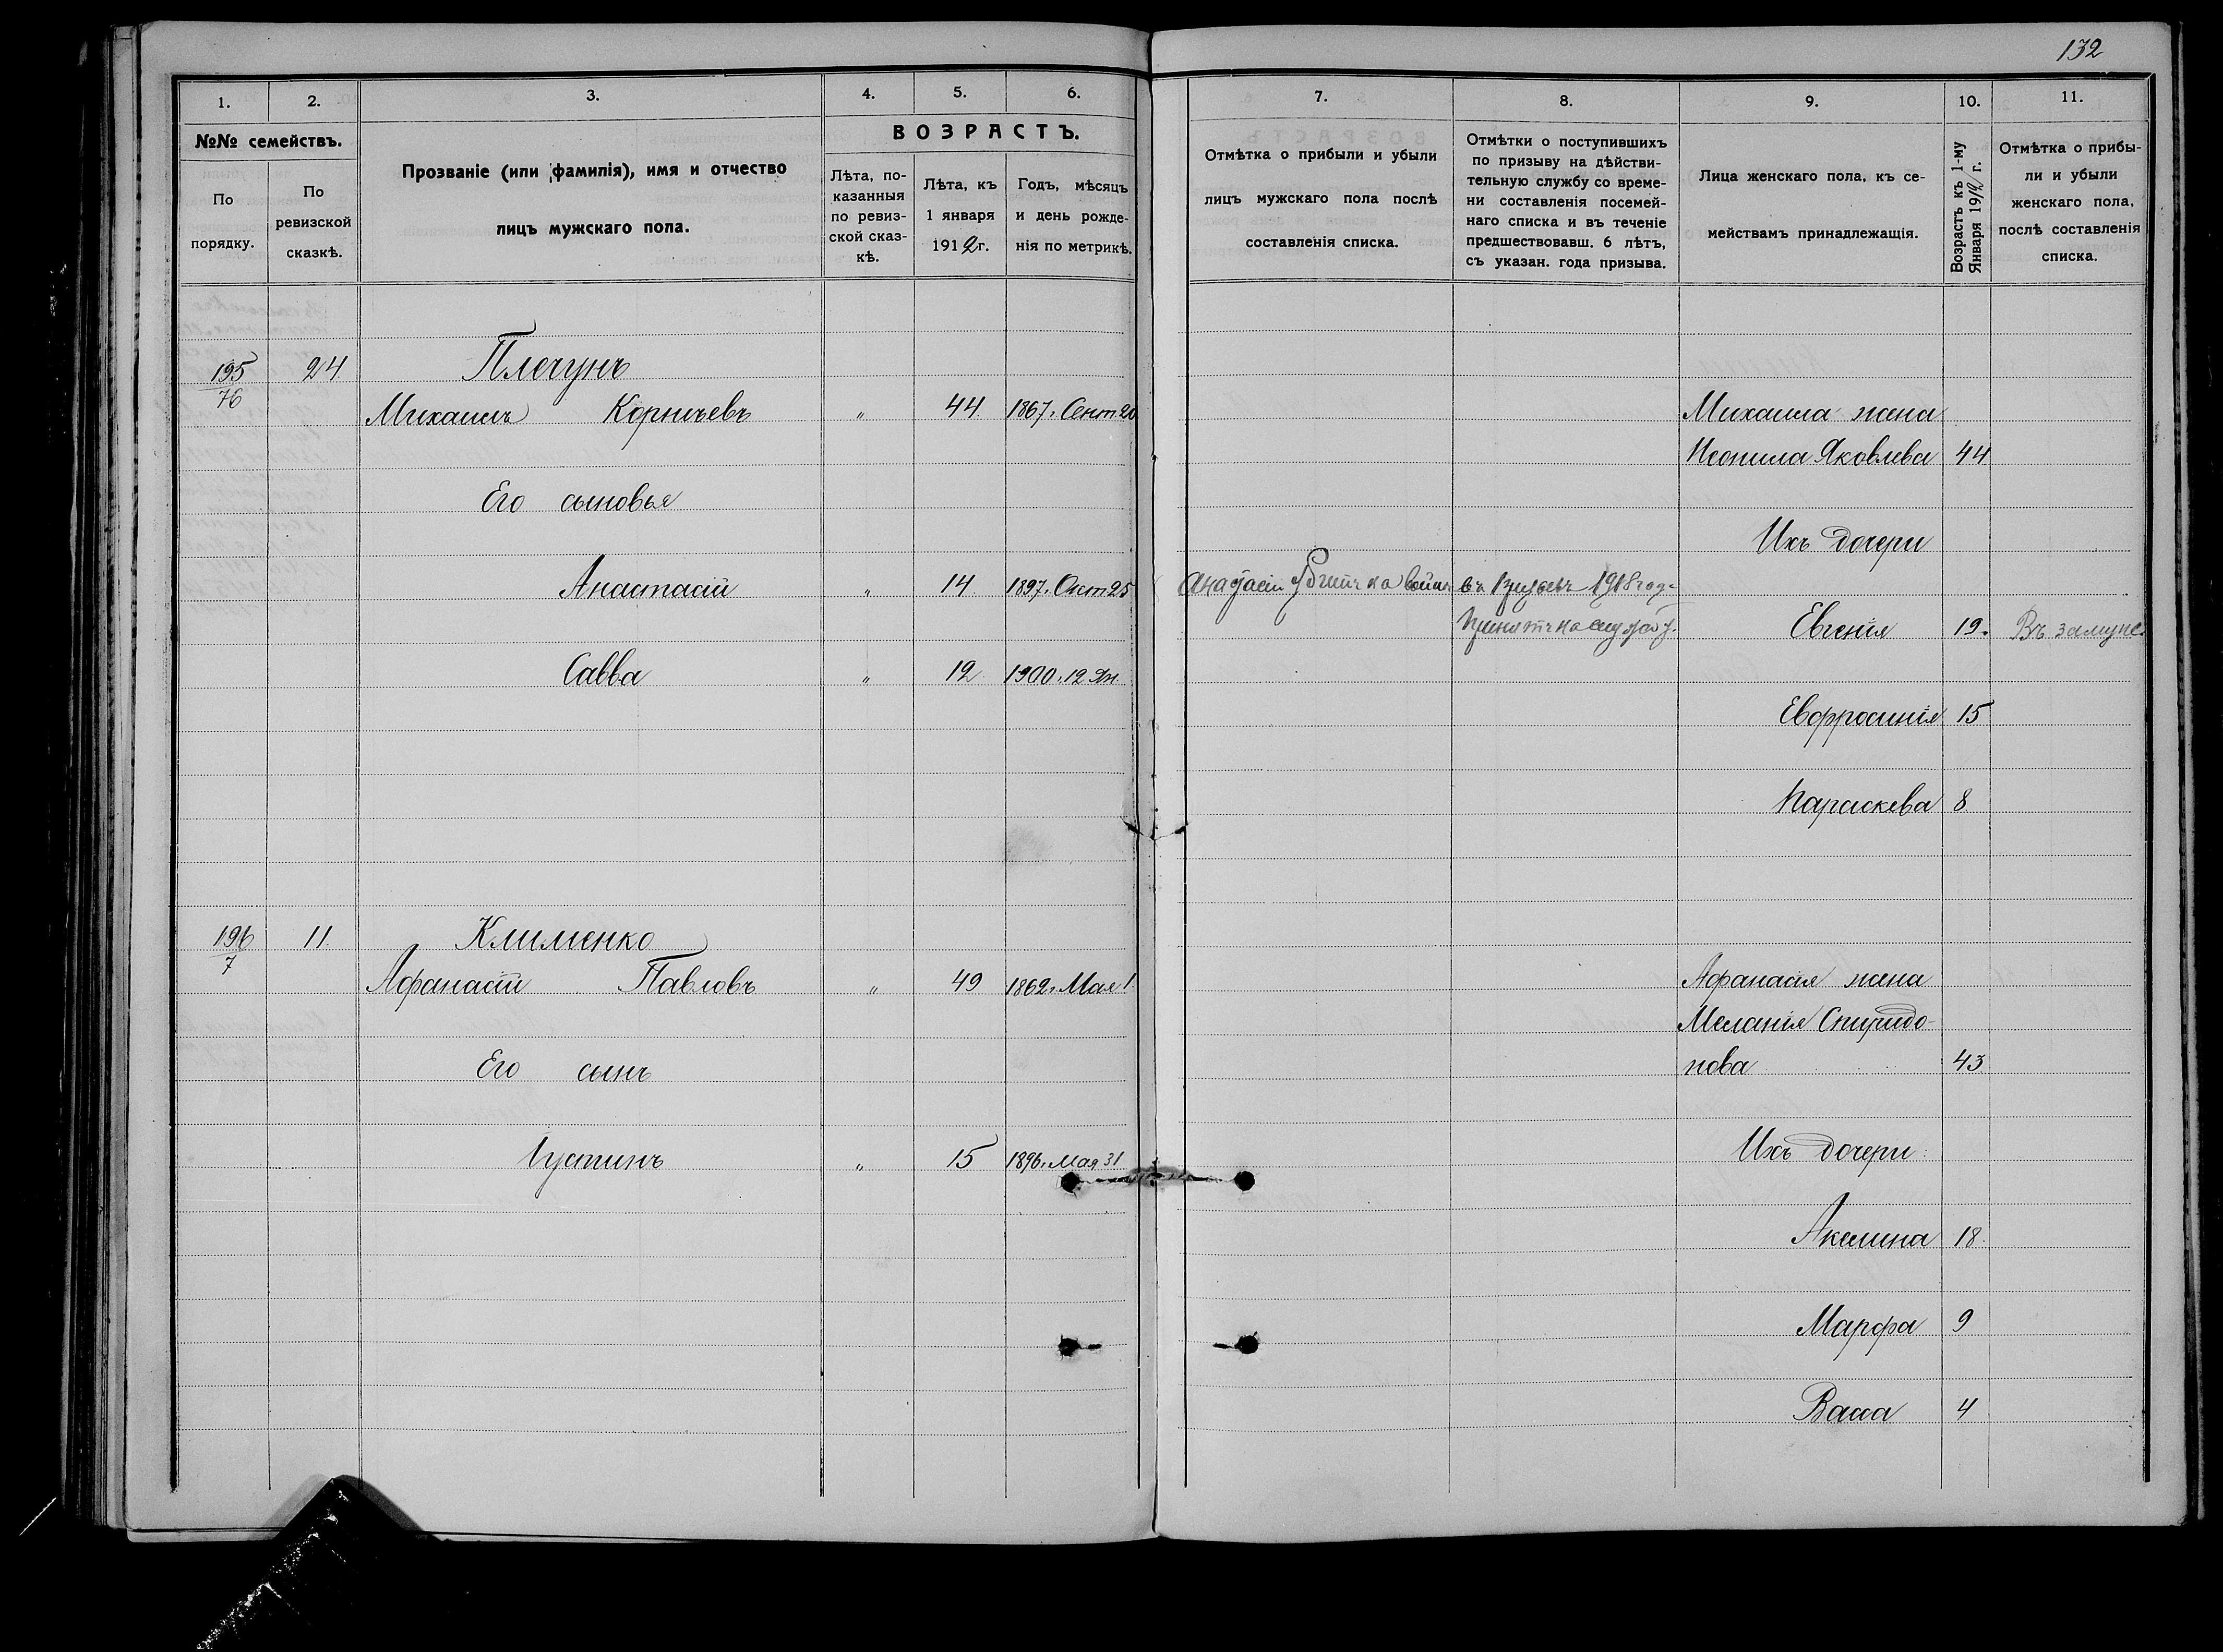 132
1. 2. 3. 4. 5. 6.
№№ семействъ.
По порядку.
По ревизской сказкѣ.
Прозваніе (или фамилія), имя и отчество
лицъ мужскаго пола.
ВОЗРАСТЪ.
Лѣта, по-
казанныя
по ревиз-
ской сказ-
кѣ.
Лѣта, къ
1 января
1912 г.
Годъ, мѣсяцъ
и день рожде-
нія по метрикѣ.
195/76 24 Плегунъ
Михаилъ Корнѣевъ „ 44 1867. Сент 20
Его сыновья
Анастасій „ 14 1897. Окт 25
Савва „ 12 1900. 12 Ян.
196/7 11. Клименко
Афанасій Павловъ „ 49 1862. Мая 1
Его сынъ
Іустинъ „ 15 1896. Мая 31
7. 8. 9. 10. 11.
Отмѣтка о прибыли и убыли
лицъ мужскаго пола послѣ
составленія списка.
Отмѣтки о поступившихъ
по призыву на дѣйстви-
тельную службу со време-
ни составленія посемей-
наго списка и въ теченіе
предшествовавш. 6 лѣтъ,
съ указан. года призыва.
Лица женскаго пола, къ се-
мействамъ принадлежащія.
Возрастъ къ 1-му
Января 1912 г.
Отмѣтка о прибы-
ли и убыли
женскаго пола,
послѣ составленія
списка.
Михаила жена
Неонила Яковлева 44
Ихъ дочери
Анастасій убитъ на войнѣ
въ 1918 год
принятъ на службу.
Евгенія 19. Въ замуже.
Евфросинія 15
Параскева 8
Афанасія жена
Меланія Спиридо-
нова 43
Ихъ дочери:
Акелина 18.
Марфа 9
Васса 4